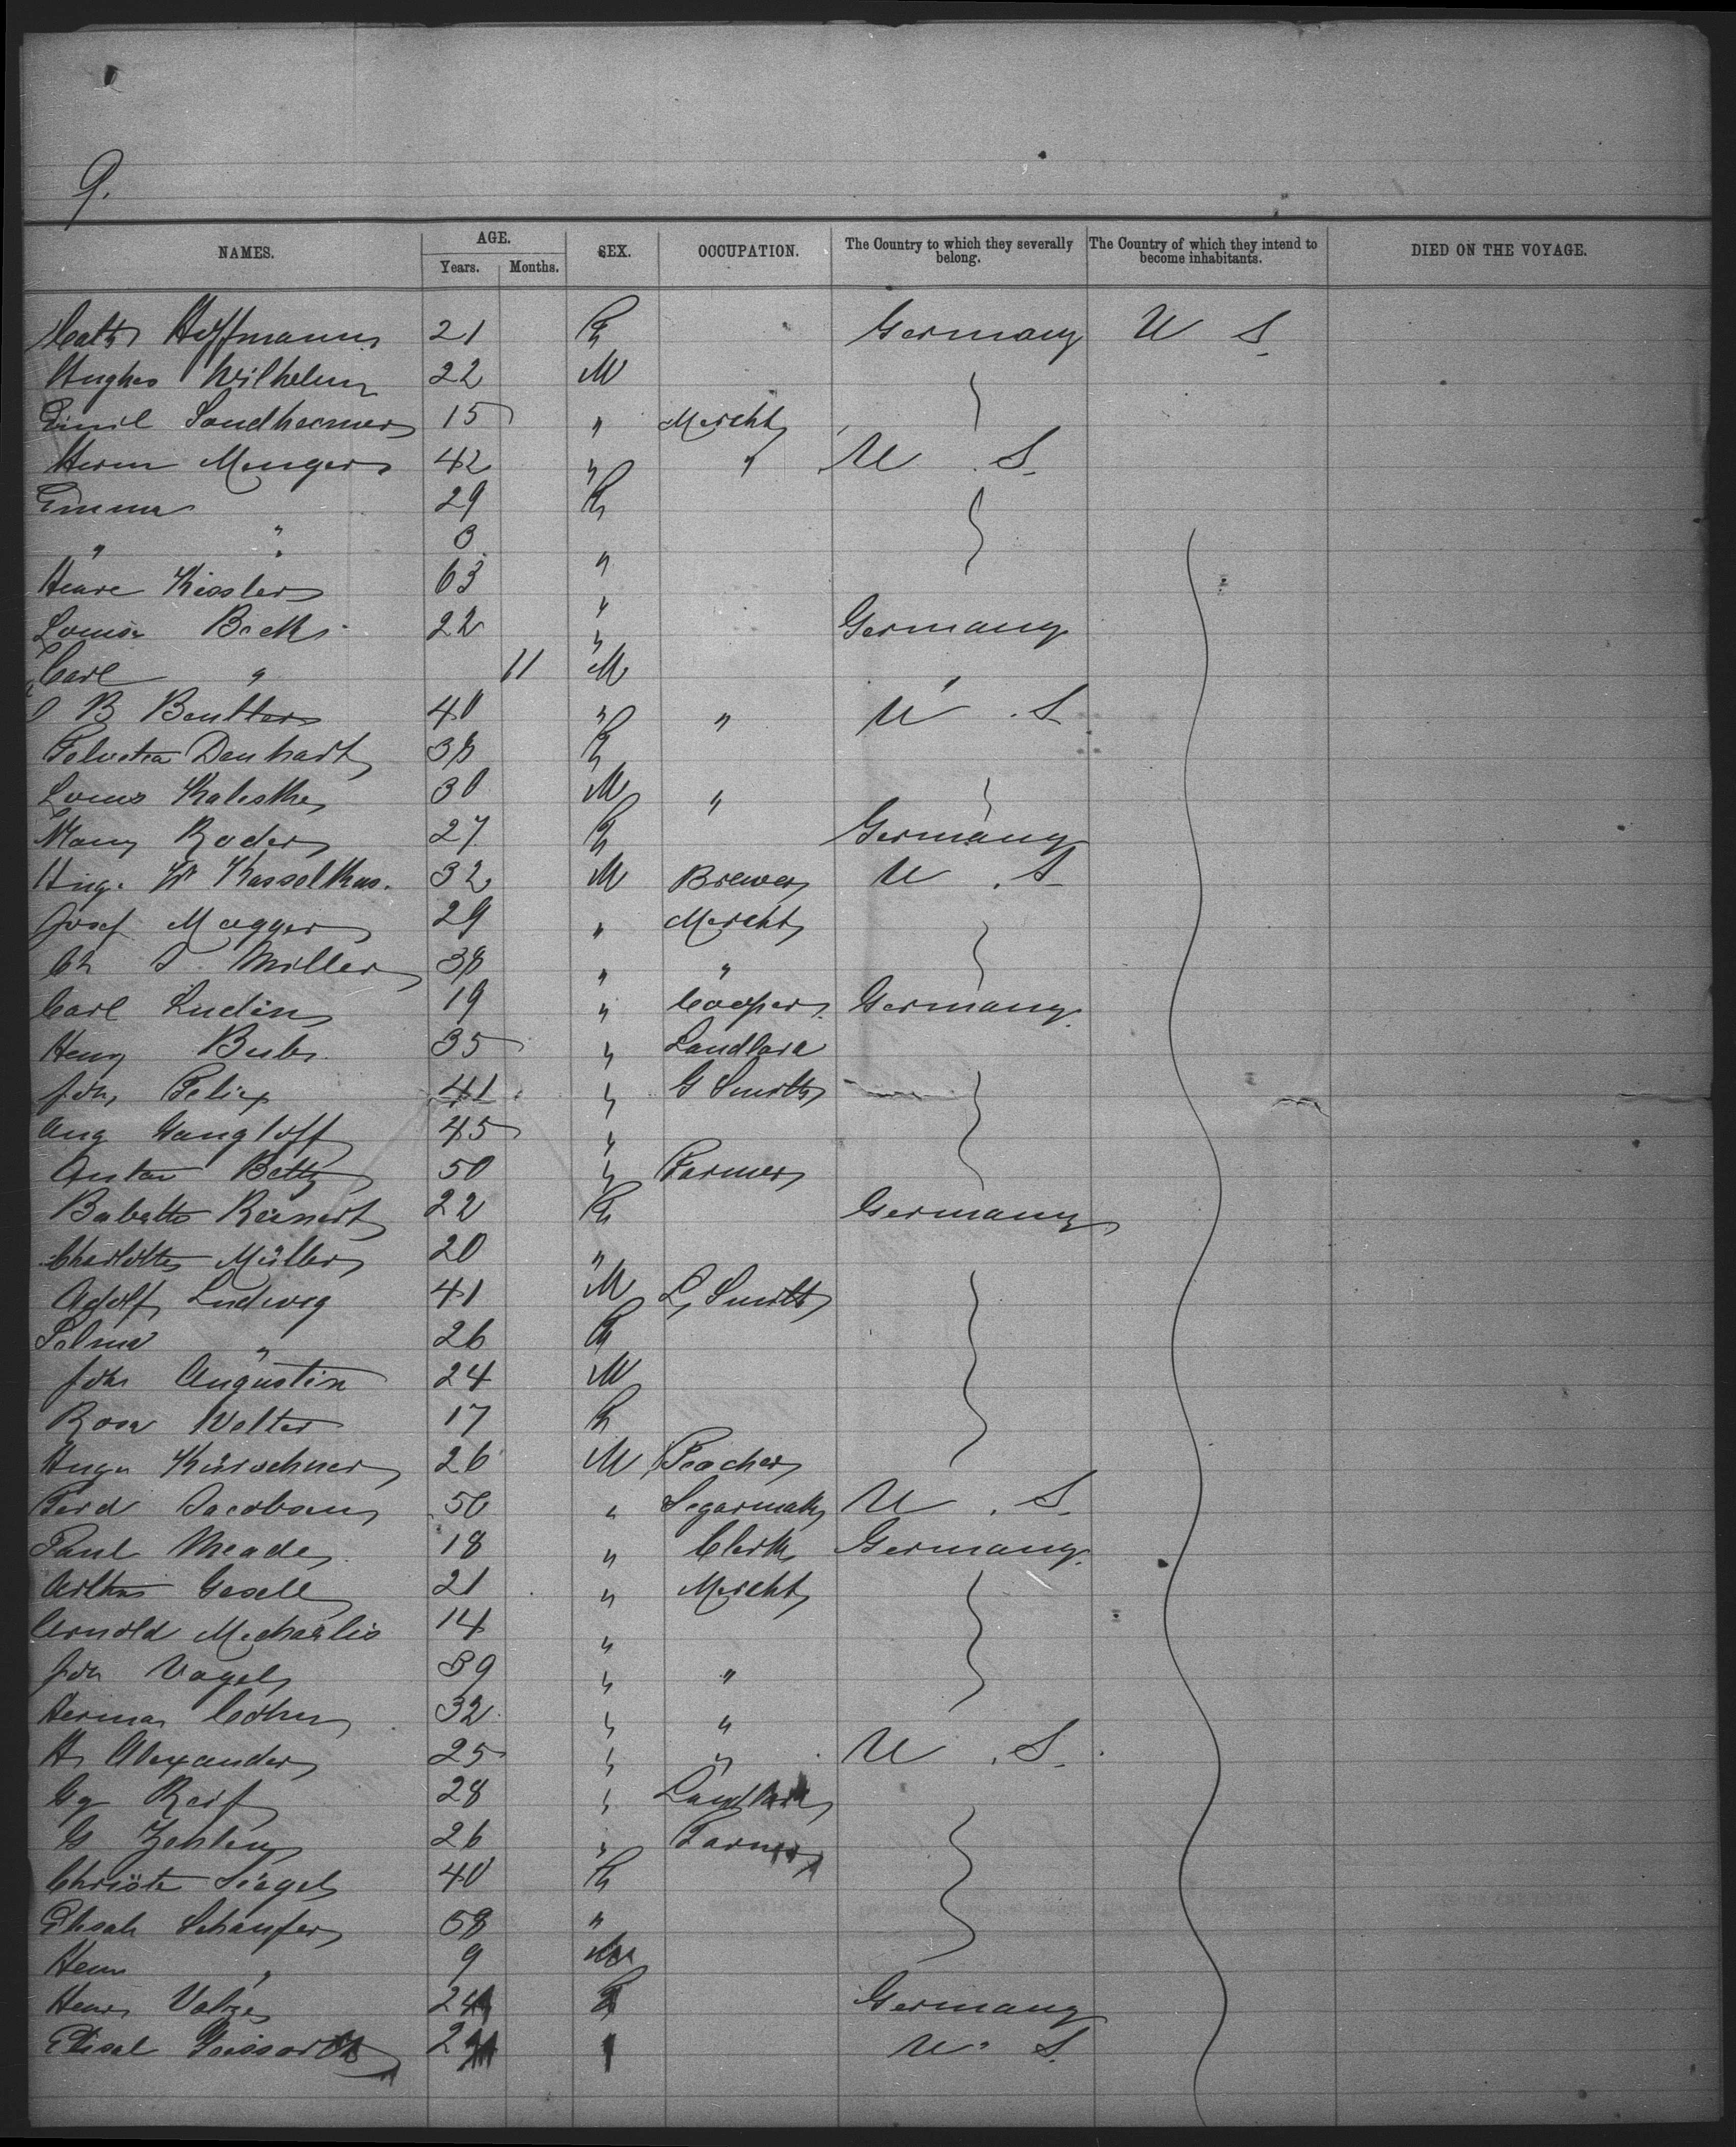 9.
NAMES. AGE. SEX. OCCUPATION. The Country to which they severally belong. The Country of which they intend to become inhabitants. DIED ON THE VOYAGE.
Years. Months.
Cath Hoffmann 21 F Germany U S
Hughes Wilhelm 22 M
Emil Sondheimer 15 " Mercht
Herm Menger 42 " " U S.
Emma 29 F
" " 3 "
Kessler 63 "
Louisa Beck 22 " Germany
Carl " 11 M
B 40 " " U S
Denhart 38 F
Louis 30 M "
Roder 27 F Germany
32 M Brewer U S
Josef Magger 29 " Mercht
Miller 38 " "
Carl Ludin 19 " Cooper Germany
Henry 35 " Landlord
Joh, Felix 41 " G Smith
Aug Gangloff 45 "
Anton Betty 50 " Farmer
Babette Reinert 22 F Germany
Charlotte Müller 20 "
Adolf Ludwig 41 M L Smith
Selma " 26 F
Joh Augustin 24 M
Rosa Wolter 17 F
Hugo Kürschner 26 M Teacher
Ferd Jacobsen 50 " Segarmak U. S.
Paul Meade 18 " Clerk Germany
Arthur Gesell 21 " Mercht
Arnold Michaelis 14 "
Joh Vogel 39 " "
Herman Cohn 32 " "
H Alexander 25 " " U. S.
Gg Reif 28 " Landlord
G 26 " Farmer
Christe Siegel 40 F
Elisab Schaufer 58 "
Henr " 9 M
Henr 24 F Germany
Elisab U. S.